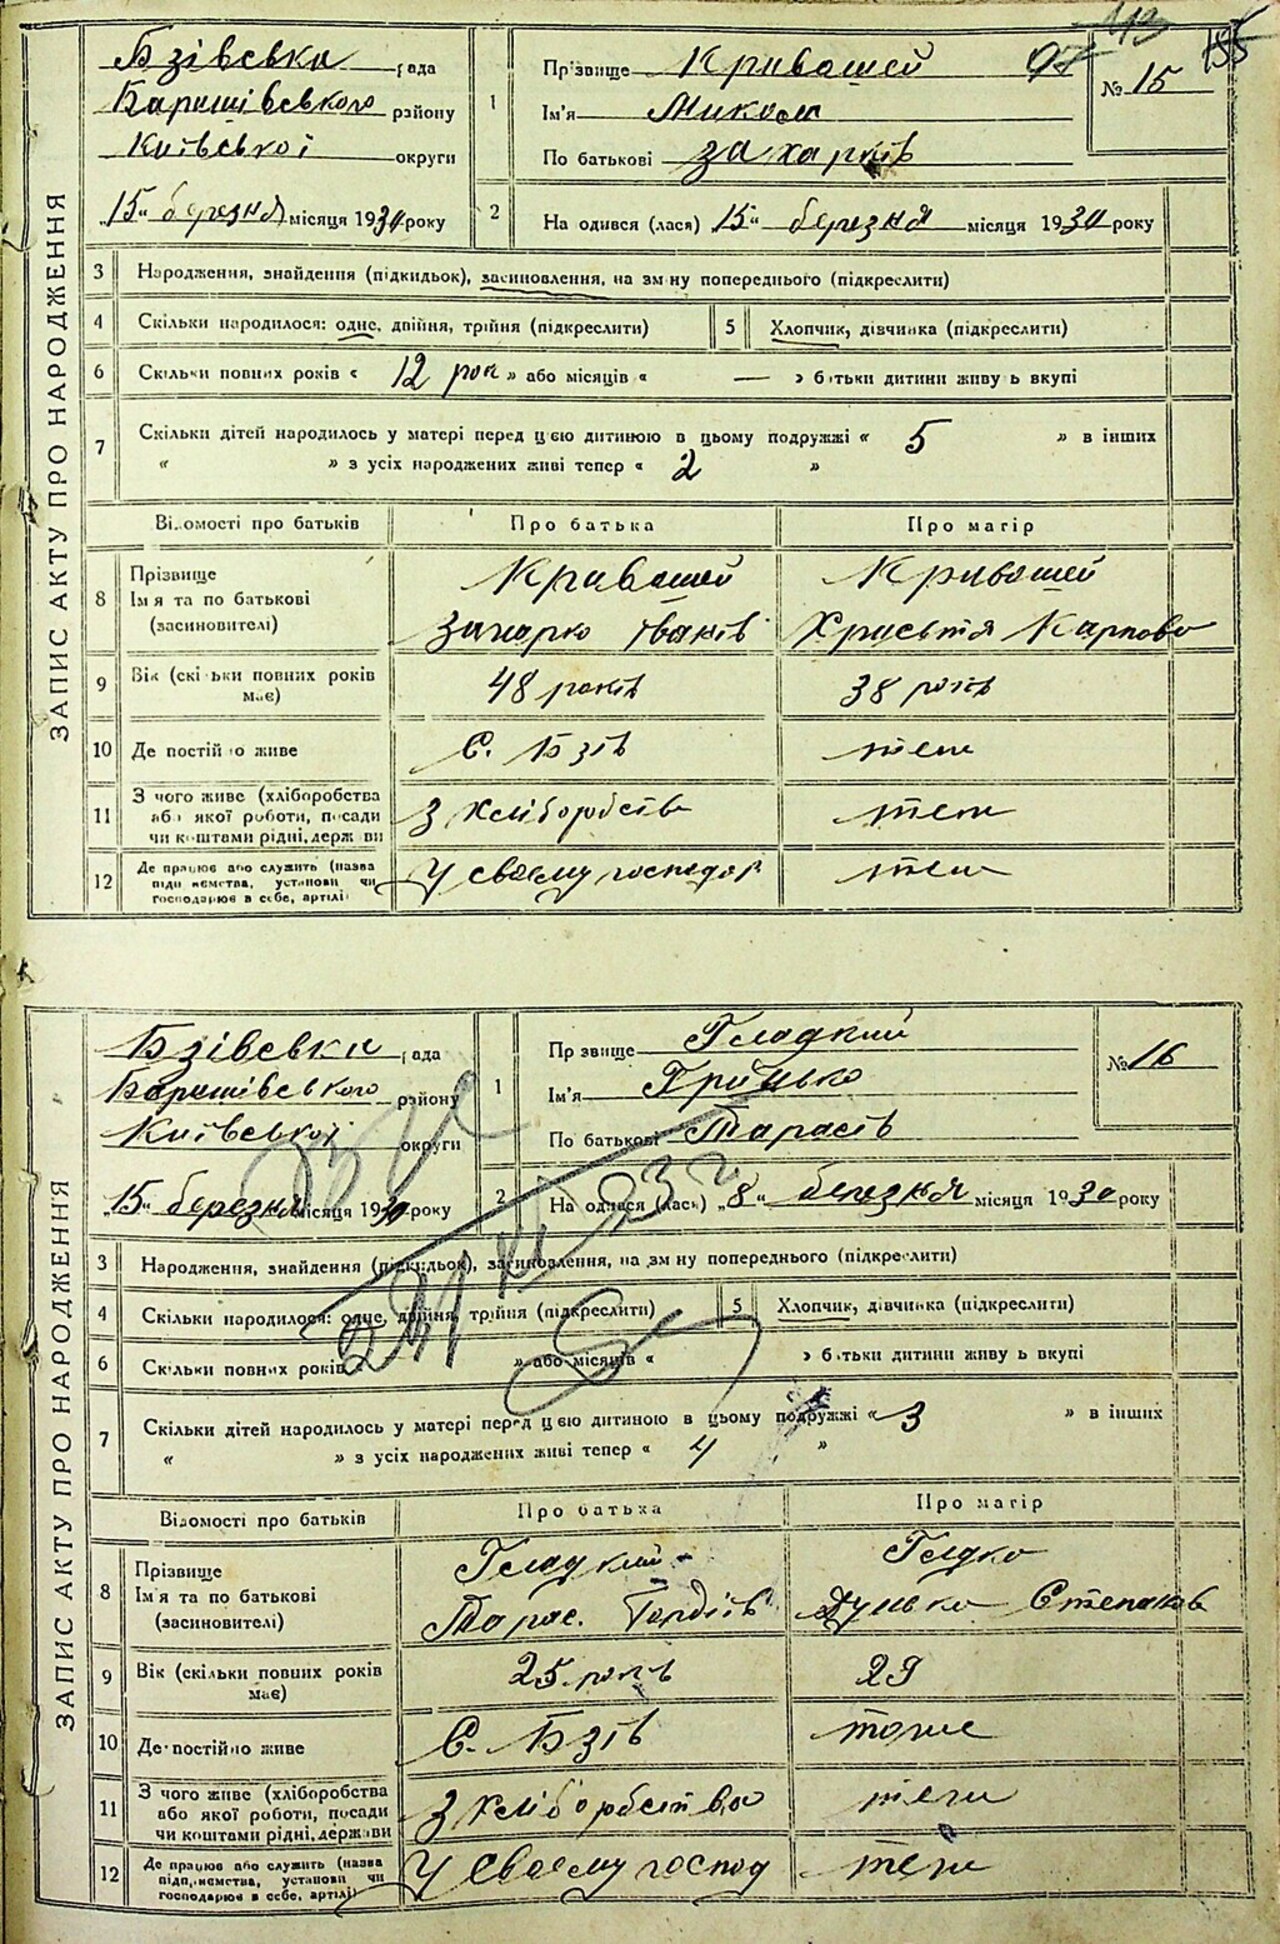 113
155
97
ЗАПИС АКТУ ПРО НАРОДЖЕННЯ
Бзівська рада
Баришівського району
Київської округи
„15“ березня місяця 1930 року
1
Прізвище Кривошей
Ім'я Микола
По батькові Захарків
№ 15
2 На одився (лася) 15“ березня місяця 1930 року
3 Народження, знайдення (підкидьок), засиновлення, на зм ну попереднього (підкреслити)
4 Скільки народилося: одне, двійня, трійня (підкреслити) 5 Хлопчик, дівчинка (підкреслити)
6 Скільки повних років « 12 рок » або місяців « — » батьки дитини живу ь вкупі
7 Скільки дітей народилось у матері перед цією дитиною в цьому подружжі « 5 » в інших
« » з усіх народжених живі тепер « 2 »
Відомості про батьків Про батька Про матір
8 Прізвище Ім'я та по батькові (засиновителі)
Кривошей Кривошей
Захарко Іванів Христя Карпова
9 Вік (скільки повних років має) 48 років 38 років
10 Де постійно живе С. Бзів теж
11 З чого живе (хліборобства або якої роботи, посади чи коштами рідні, держ ви З хліборобства теж
12 Де працює або служить (назва підприємства, установи чи господарює в себе, артілі) У своєму господар теж
ЗАПИС АКТУ ПРО НАРОДЖЕННЯ
Бзівська рада
Баришівського району
Київської округи
„15“ березня місяця 1930 року
1
Пр звище Гладкий
Ім'я Грицько
По батькові Тарасів
№ 16
2 На одився (лась) „8“ березня місяця 1930 року
3 Народження, знайдення (підкидьок), засиновлення, на зм ну попереднього (підкреслити)
4 Скільки народилося: одне, двійня, трійня (підкреслити) 5 Хлопчик, дівчинка (підкреслити)
6 Скільки повних років « » або місяців « » батьки дитини живу ь вкупі
7 Скільки дітей народилось у матері перед цією дитиною в цьому подружжі « 3 » в інших
« » з усіх народжених живі тепер « 4 »
Відомості про батьків Про батька Про матір
8 Прізвище Ім'я та по батькові (засиновителі)
Гладкий
Тарас. Гордіїв Степанов
9 Вік (скільки повних років має) 25 років 29
10 Де постійно живе С. Бзів тоже
11 З чого живе (хліборобства або якої роботи, посади чи коштами рідні, держави З хліборобства теж
12 Де працює або служить (назва підприємства, установи чи господарює в себе, артілі) У своєму господ теж